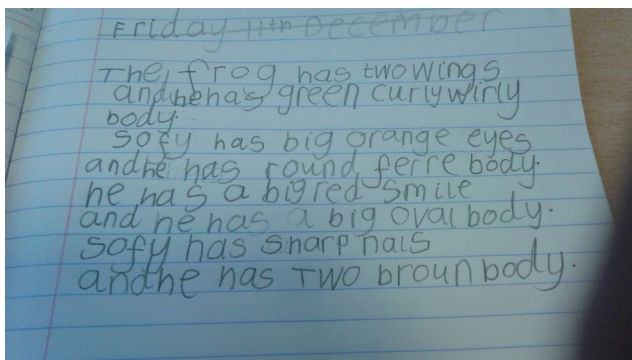 Friday 11th December
The frog has two wings
and he has green curly wirly
body.
Sofy has big orange eyes
and he has round ferre body.
he has a big red smile
and he has a big oval body.
Sofy has sharp nals
and he has Two broun body.